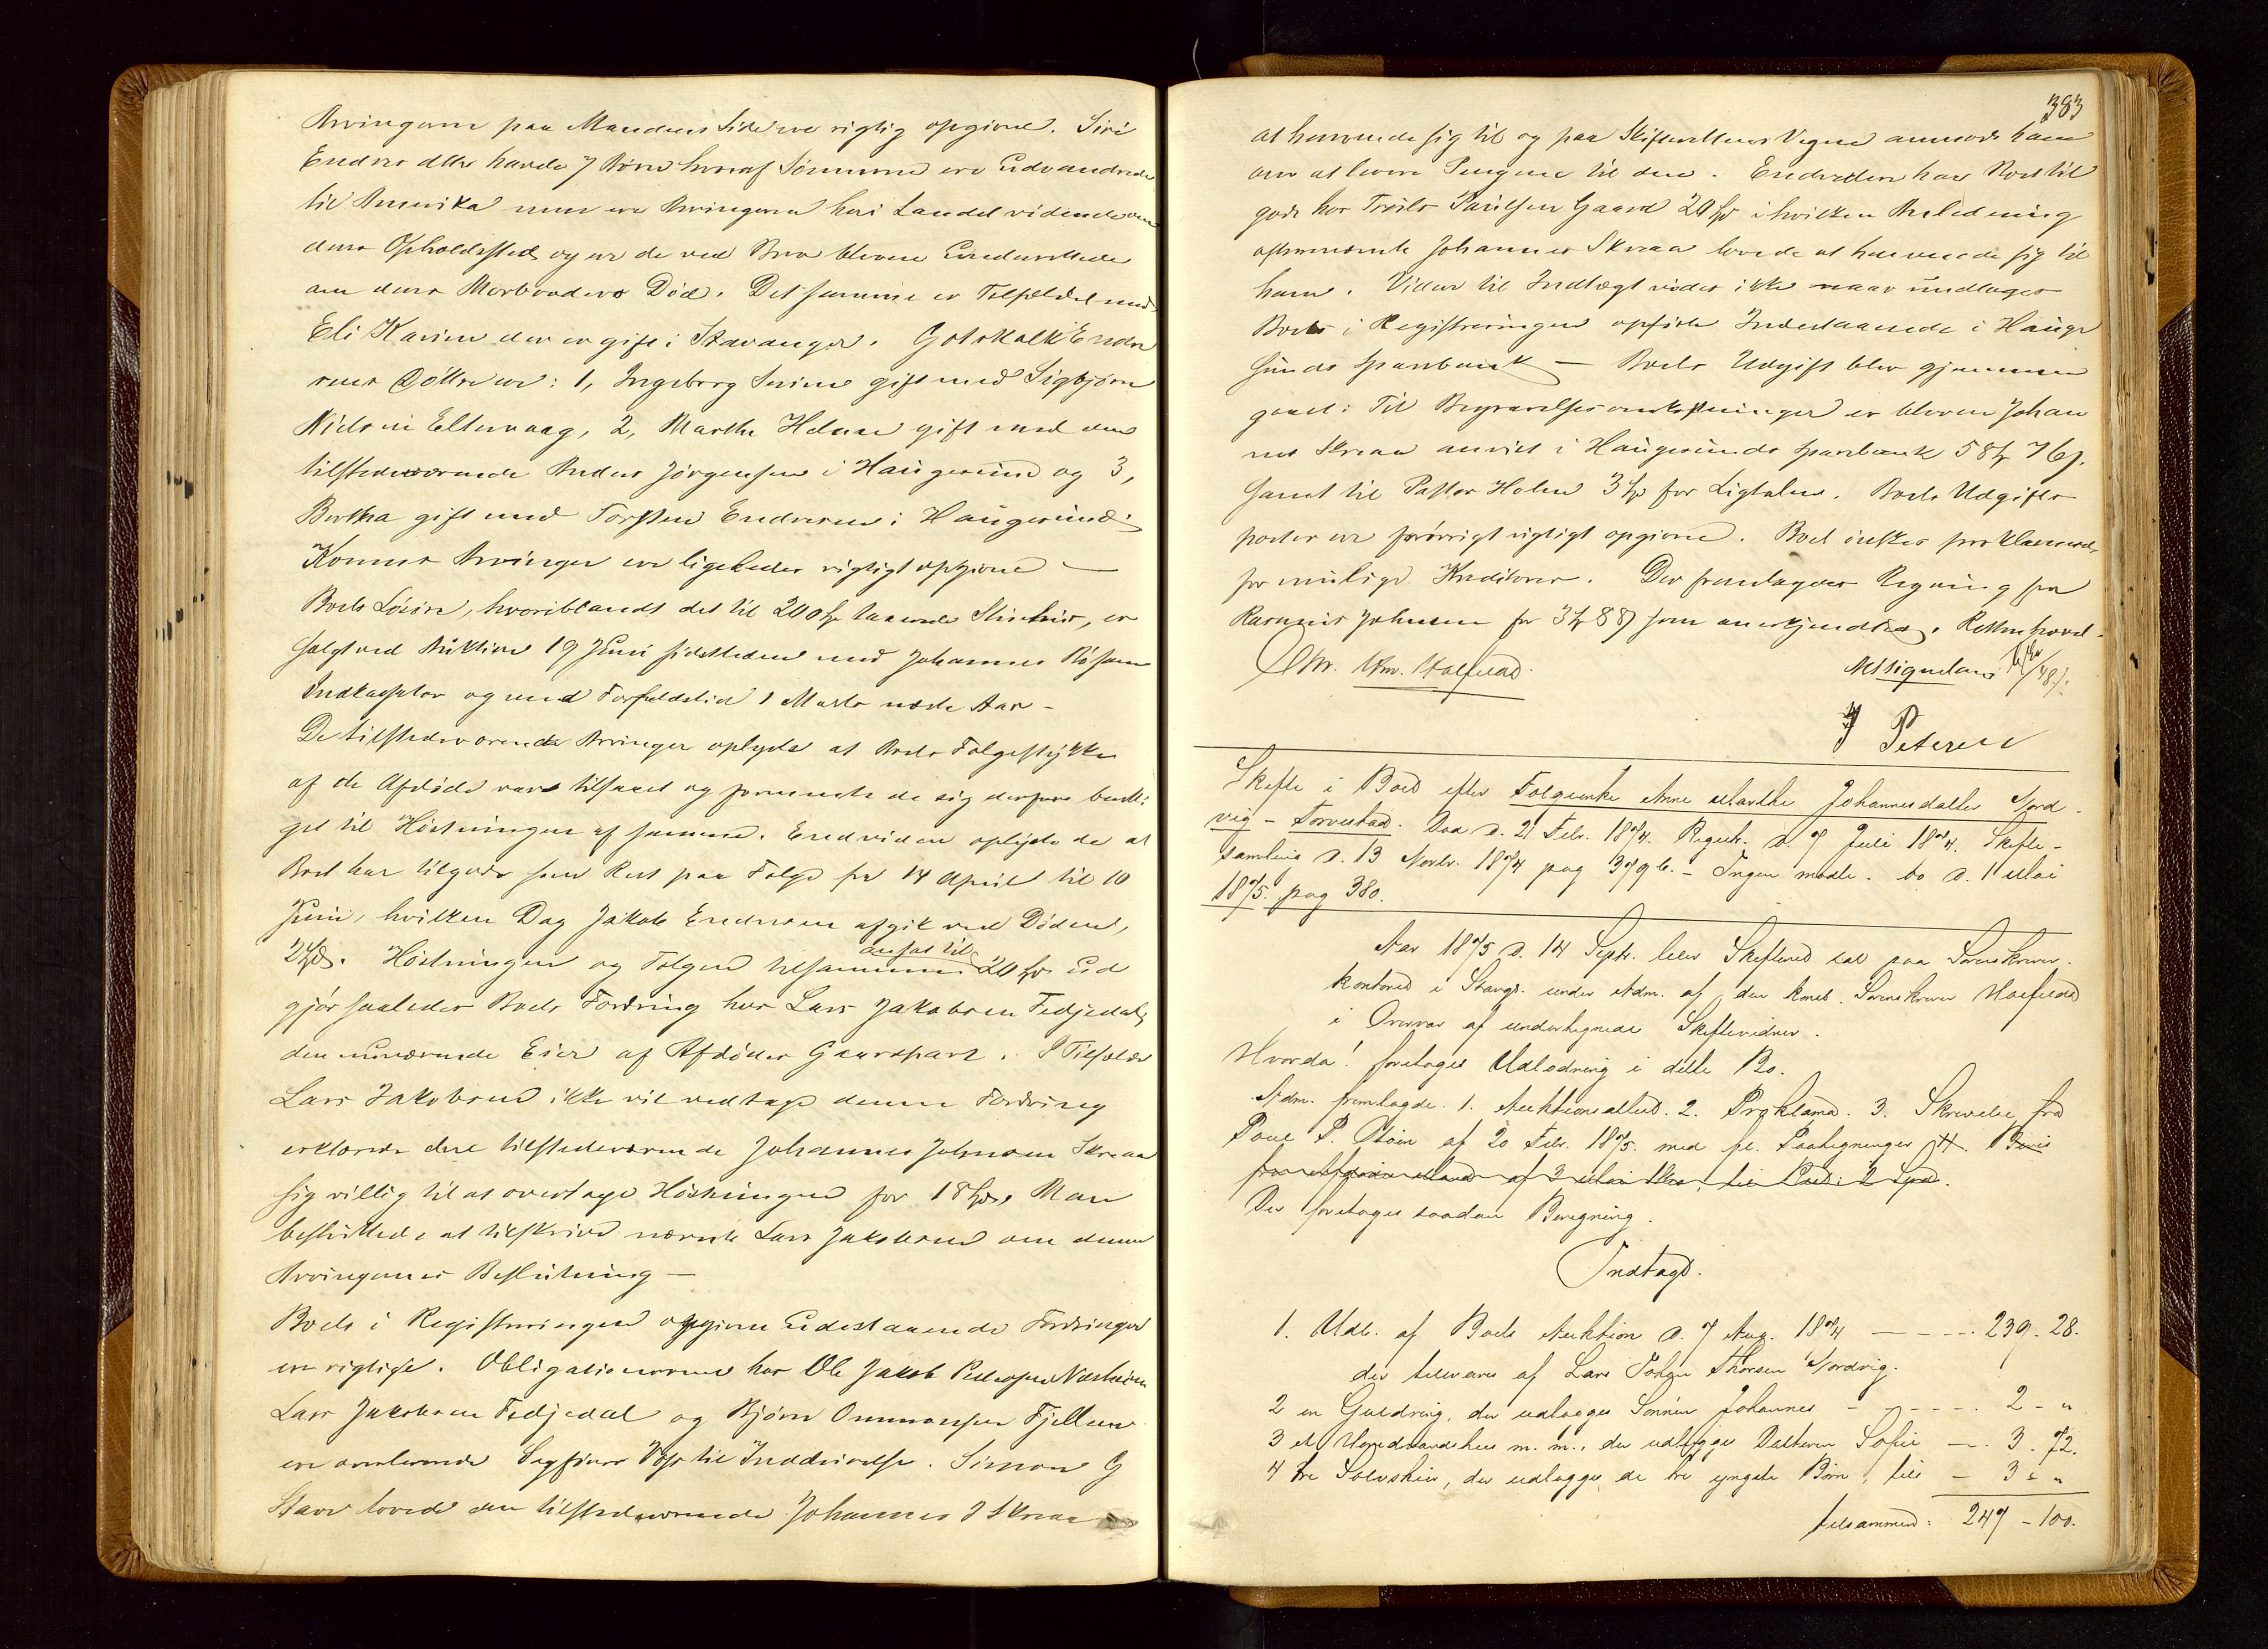 Arvingerne paa Mandens Side ere rigtig opgivne. Siri
Endresdtter havde 7 Børn hvoraf Sønnerne ere udvandrede
til Amerika men ere Arvingerne her i Landet vidende om
deres Opholdssted og er de ved Brev blevne underrettede
om deres Morbroders Død. Det samme er Tilfældet med
Eli Karine der er gift i Stavanger. Gotskalk Endre
sens Døttre ere: 1, Ingeborg Serine gift med Sigbjørn
Nielsen Eltervaag, 2, Marthe Helene gift med den
tilstedeværende Anders Jørgensen i Haugesund og 3,
Bertha gift med Torsten Endresen i Haugesund.
Konens Arvinger ere ligeledes rigtigt opgivne —
Boets Løsøre, hvoriblandt det til 200 Spd taxerede Huus, er
solgt ved Auktion 19 Juni sidstleden med Johannes
Indkassator og med Forfaldstid 1 Marts næste Aar –
De tilstedeværende Arvinger oplyste at Boets Følgestykke
af de Afdøde vare tilsaaet og formente de sig derfor beret-
get til Høstningen af samme. Endvidere oplyste de at
Boet har tilgode som Rest paa Følge fra 14 April til 10
Juni, hvilken Dag Jakob Endresen afgik ved Døden,
2 Spd. Høstningen og Følgen tilsammen ansat til 20 Spd ud
gjør saaledes Boets Fordring hos Lars Jakobsen Fedjedal,
den nuværende Eier af Afdødes Gaardpart. I Tilfælde
Lars Jakobsen ikke vil vedtage denne Fordring
erklærede den tilstedeværende Johannes Johnsen Skreaa
sig villig til at overtage Høstningen for 18 Spd. Man
besluttede at tilskrive nævnte Lars Jakobsen om denne
Arvingernes Beslutning —
Boets i Registreringen opgivne udestaaende Fordringer
ere rigtige. Obligationerne hos Ole Jakob Pedersen
Lars Jakobsen Fedjedal og Bjørn Ommonsen Fjellen
ere overleverede Sagfører til Inddrivelse. Simon G
Stave lovede den tilstedeværende Johannes J Skreaa
383
at henvende sig til og paa Skifterettens Vegne anmode ham
om at levere Pengene til den. Endvidere har Boet til
gode hos Paulsen Gaard 20 Spd i hvilken Anledning
ofternævnte Johannes Skreaa lovede at henvende sig til
ham. Videre til Indtægt vides ikke naar undtages
Boets i Registreringen opførte Indestaaende i Hauge
sunds Sparebank — Boets Udgift blev gjennem
gaaet: Til Begravelsesomkostninger er bleven Johan
nes Skreaa anvist i Haugesunds Sparebank 58 Spd 76 s.
samt til Pastor Holm 3 Spd for Ligtalen. Boets Udgifts
poster ere forøvrigt rigtigt opgivne. Boet ønskes proklameret
for mulige Kreditorer. Der fremlagdes Regning fra
Rasmus Johnsen for 3 Spd 88 s som anerkjendtes. Retten hævet.
Chr. Hm. Hoelfeldt.
J Petersen
Skifte i Boet efter Følgeenke Anne Marthe Johannesdatter Nord-
vig – Torvestad. Død d. 21 Febr. 1874. Registr. d. 7 Juli 1874. Skifte-
samling d. 13 Novbr. 1874 pag 379 b. – Ingen mødte. do d. 1 Mai
1875. pag 380.
Aar 1875 d. 14 Septr. blev Skifteret sat paa Sorenskriver-
kontoret i Stavgr. under Adm. af den konst. Sorenskriver Hoelfeldt
i Overvær af undertegnede Skiftevidner.
Hvorda! foretages Udlodning i dette Bo.
Adm. fremlagde. 1. Auktionsattest. 2. Proklama. 3. Skrivelse fra
Poul P. Støen af 20 Febr. 1875. med fl. Paategninger 4. Bevis
Der foretages saadan Beregning.
Indtægt.
1. Udb. af Boets Auktion d. 7 Aug. 1874 — – – – . 239. 28.
der tilsvares af Lars Johan Thorsen Nordvig.
2 en Guldring, der udlægges Sønnen Johannes – – – – – – . 2 – "
3 et Hovedvandshus m. m., der udlægges Datteren Sofie —. 3. 72.
4 tre Sølvskeer, der udlægges de tre yngste Børn, til – 3 – "
tilsammen: 247 – 100.